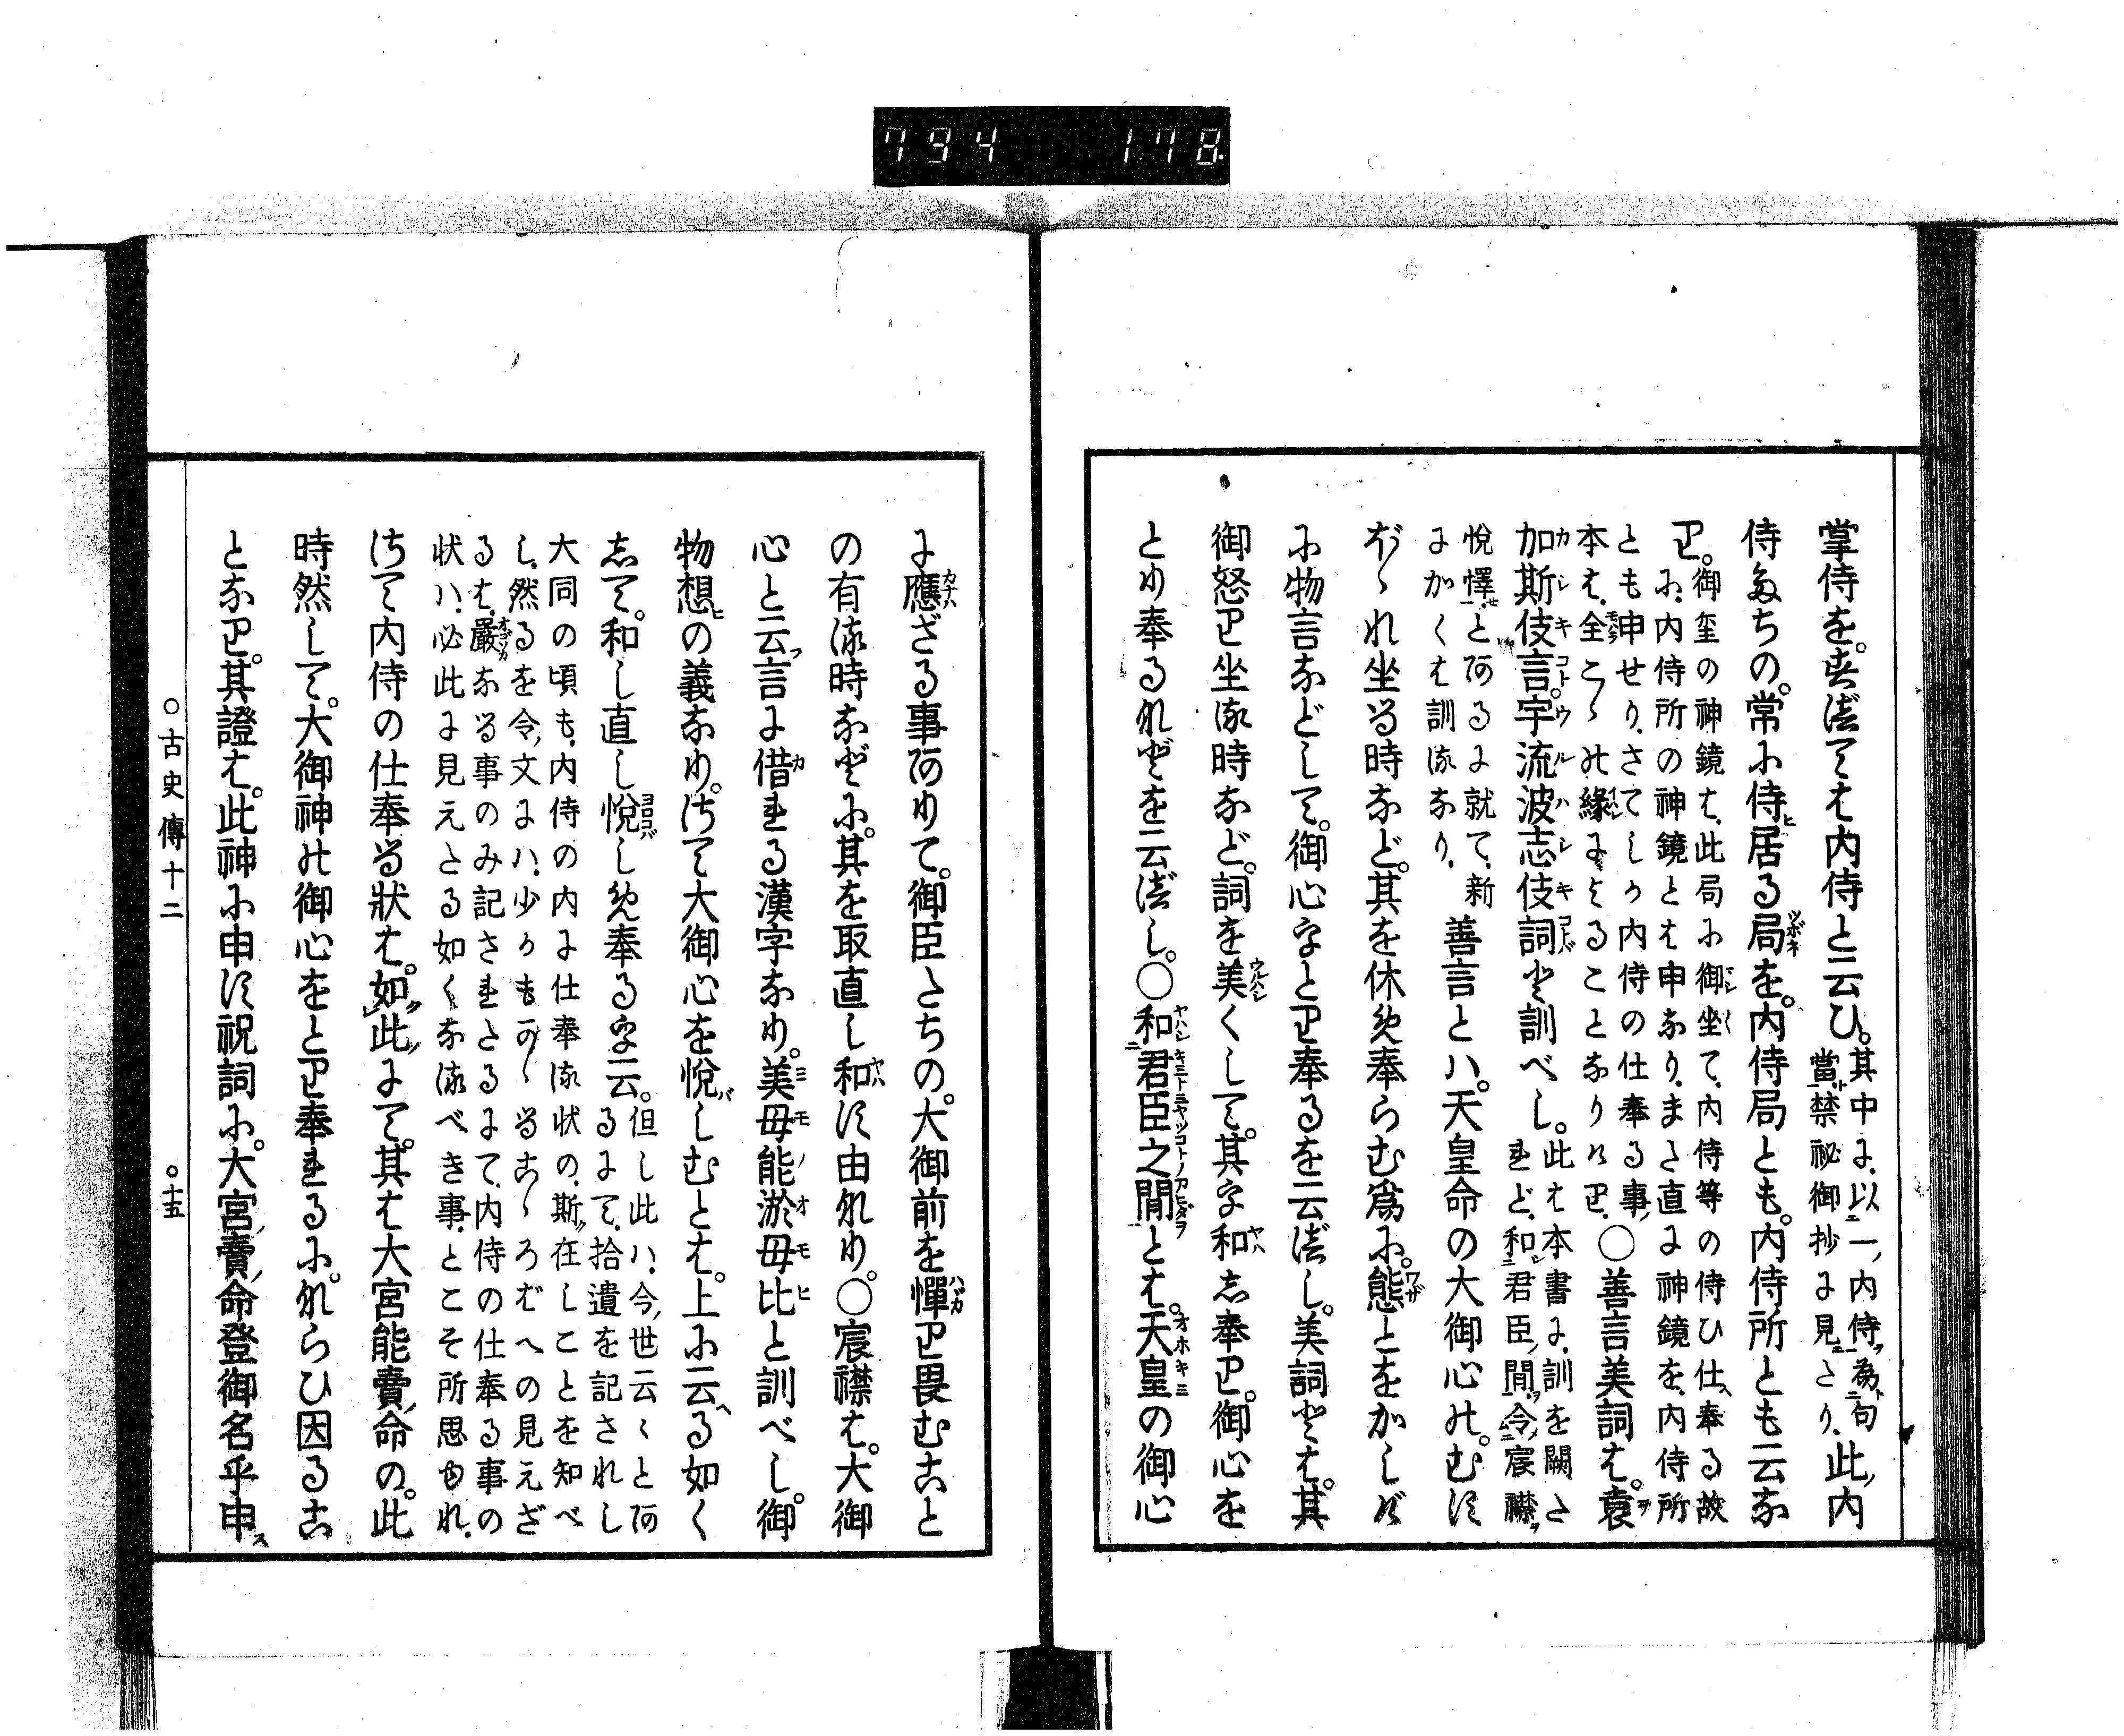 794 178
掌侍を。すべては内侍と云ひ。其中に、以一内侍為句
當、禁祕御抄に見えたり、此内
侍たちの。常に侍居る局を。内侍局とも。内侍所とも云な
り。御璽の神鏡は、此局に御坐て、内侍等の侍ひ仕奉る故
に、内侍所の神鏡とは申なり、また直に神鏡を、内侍所
とも申せり、さてしか内侍の仕奉る事、
本は、全こゝの緣によることなりけり、○善言美詞は。袁
加斯伎言。宇流波志伎詞と訓べし。此は本書に、訓を闕た
れど、和君臣間、令宸襟
悅懌、とあるに就て、新
にかくは訓るなり、善言とハ。天皇命の大御心の。むす
ぼゝれ坐る時など。其を休め奉らむ爲に。態とをかしげ
に物言などして。御心をとり奉るを云べし。美詞とは。其
御怒り坐る時など。詞を美くして。其を和し奉り。御心を
とり奉るなどを云べし。○和君臣之間とは。天皇の御心
に應ざる事ありて。御臣たちの。大御前を憚り畏むこと
の有る時などに。其を取直し和す由なり。○宸襟は。大御
心と云言に借れる漢字なり。美母能淤母比と訓べし。御
物想の義なり。さて大御心を悅しむとは。上に云る如く
して。和し直し悅しめ奉るを云。但し此ハ、今世云々とあ
るにて、拾遺を記されし
大同の頃も、内侍の内に仕奉る状の、斯在しことを知べ
し、然るを令文にハ、少かもかゝるこゝろばへの見えざ
るは、嚴なる事のみ記されたるにて、内侍の仕奉る事の
状ハ、必此に見えたる如くなるべき事とこそ所思ゆれ、
さて内侍の仕奉る狀は。如此にて。其は大宮能賣命の。此
時然して。大御神の御心をとり奉れるに。ならひ因るこ
となり。其證は。此神に申す祝詞に。大宮賣命登御名乎申
○古史傳十二 ○十五